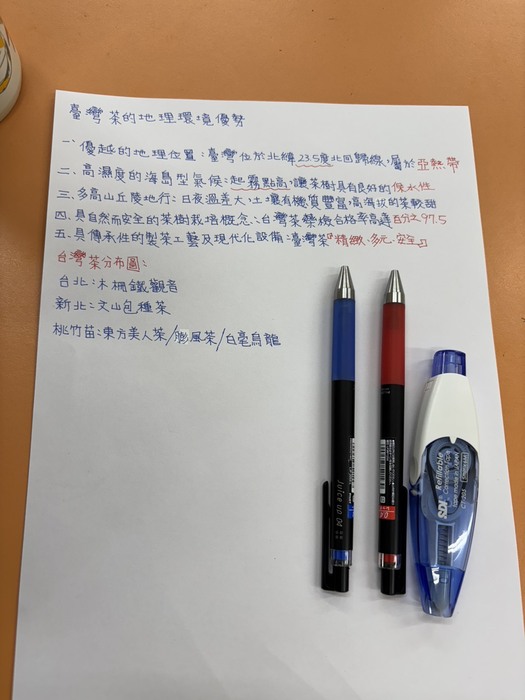 臺灣茶的地理環境優勢
一、優越的地理位置：臺灣位於北緯23.5度北回歸線，屬於亞熱帶
二、高濕度的海島型氣候：起霧點高，讓茶樹具有良好的保水性
三、多高山丘陵地行：日夜溫差大、土壤有機質豐富，高海拔的茶較甜
四、具自然而安全的茶樹栽培概念：台灣茶藥檢合格率高達百分之97.5
五、具傳承性的製茶工藝及現代化設備：臺灣茶『精緻、多元、安全』
台灣茶分布圖：
台北：木柵鐵觀音
新北：文山包種茶
桃竹苗：東方美人茶/膨風茶/白毫烏龍
Juice up 04
SDI
Refillable
Correction tape
tape made in JAPAN